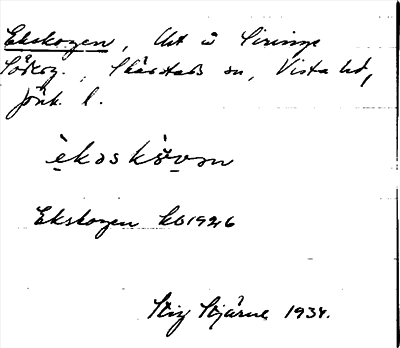 Ekskogen, Utt u Siringe
Sdskog., Skärstads sn, Vista hd,
Jönk. l.
èkəskòvən
Ekskogen kb 1926
Stig Stjärne 1934.